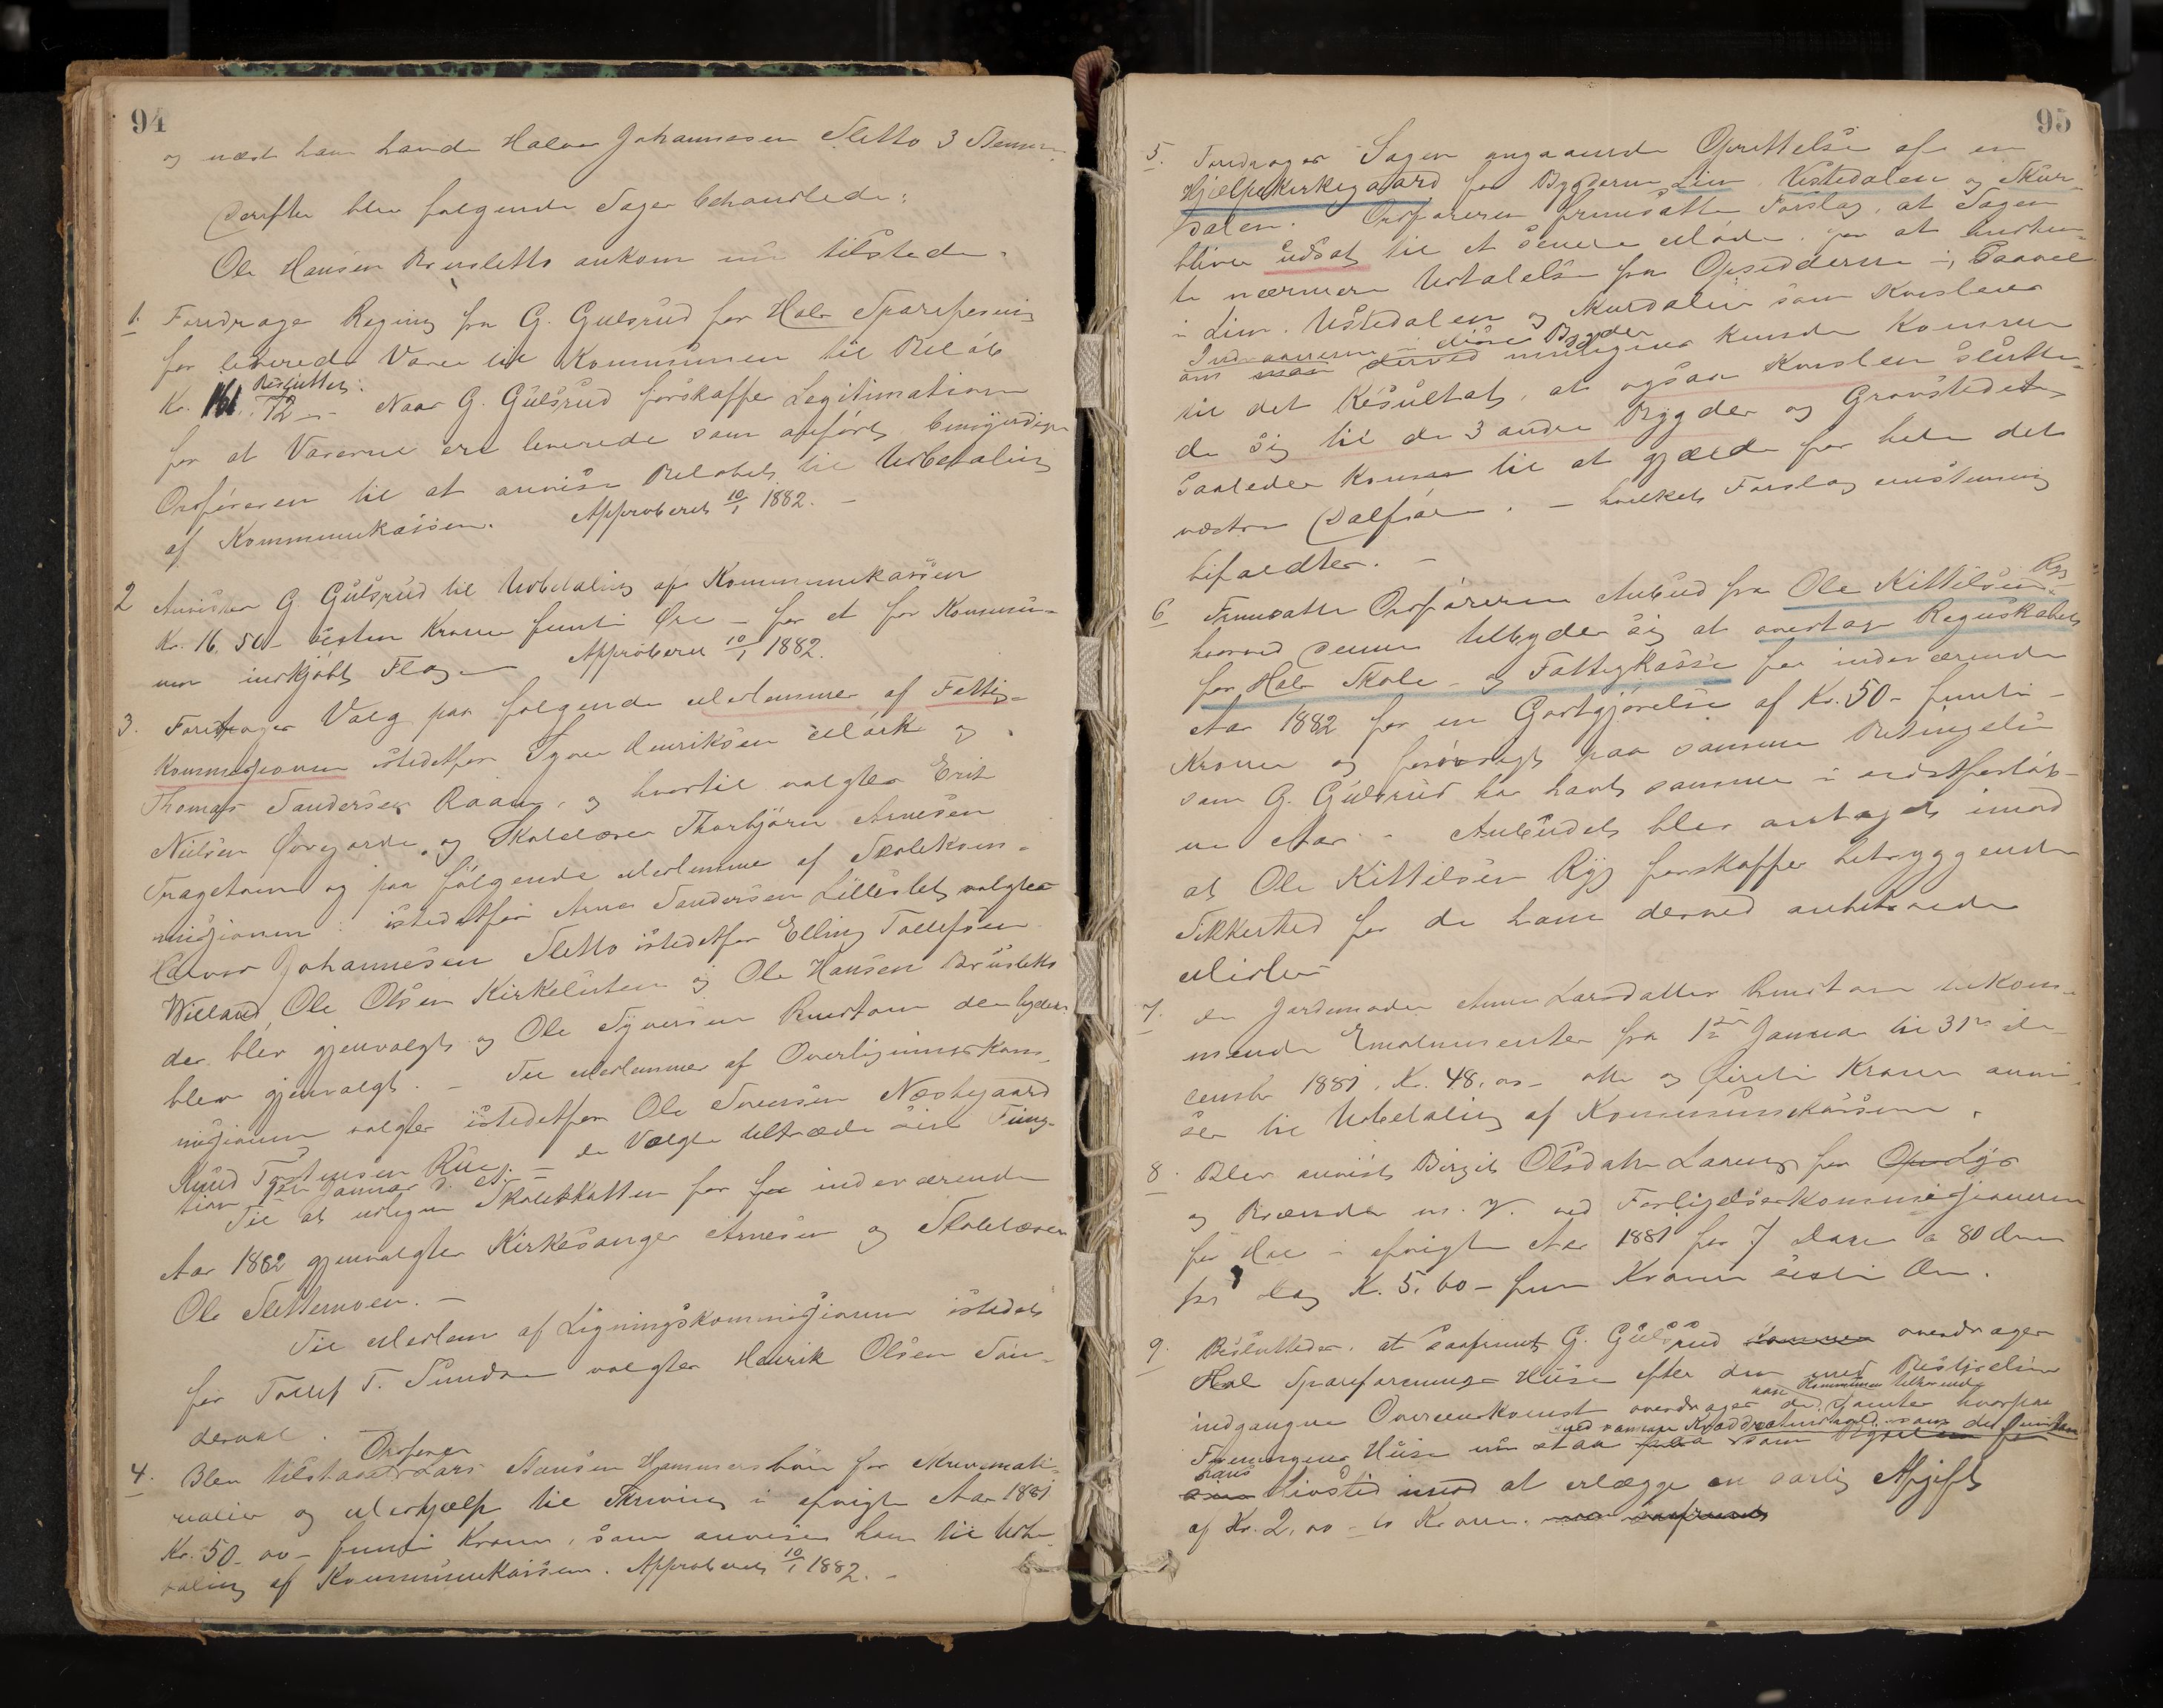 94
og næst ham havde Halvor Johannesen Sletto 3 Stemmer.
Derefter blev følgende Sager behandlede:
Ole Hansen Brusletto ankom nu tilstede.
1. Foredrages Regning fra G. Gulsrud for Hols Spareforening
for leverede Varer til Kommunen til Beløb
Besluttet:
Kr. 161.72 – Naar G. Gulsrud forskaffer Legitimation
for at Varerne ere leverede som anført, bemyndiges
Ordføreren til at anvise Beløbet til Udbetaling
af Kommunekassen. Approberet 10/1 1882. –
2 Anvistes G. Gulsrud til Udbetaling af Kommunekassen
Kr. 16,50 – sexten Kroner femti Øre – for et for Kommu-
nen indkjøbt Flag. – Approberet 10/1 1882.
3. Foretages Valg paa følgende Medlemmer af Fattig-
kommissionen istedetfor Syver Henriksen Mørk og
Thomas Sandersen Raaen, og hvortil valgtes Erik
Nielsen Øvregarde og Skolelærer Thorbjørn Arnesen
Trageton og paa følgende Medlemmer af Skolekom-
missionen: istedetfor Arne Sandersen Lilleslet valgtes
Halvor Johannesen Sletto istedetfor Elling Tollefsen
Villand, Ole Olsen Kirkelien og Ole Hansen Brusletto
der blev gjenvalgt og Ole Syversen Rustom der ligeledes
blev gjenvalgt. – Til Medlemmer af Overligningskom-
missionen valgtes istedetfor Ole Sversen Nestegaard
Knud Torstensen Rue. – De Valgte tiltræde sin Fung-
tion 1ste Januar d. A.
Til at udligne Skoleskatten for indeværende
Aar 1882 gjenvalgtes Kirkesanger Arnesen og Skolelærer
Ole Slettemoen. –
Til Medlem af Ligningskommissionen istedet
for Tollef T. Sundre valgtes Henrik Olsen Sun-
derual.
Ordfører
4. Blev tilstaaet Lars Hansen Hammersbøen for Skrivemate-
rialier og Medhjælp til Skrivning i afvigte Aar 1881
Kr. 50,00 – femti Kroner, som anvises ham til Udbe-
taling af Kommunekassen. Approberet 10/1 1882. –
95
5. Foredrages Sagen angaaende Oprettelse af en
Hjælpekirkegaard for Bygderne Lien, Ustedalen og Skur-
dalen. Ordføreren fremsatte Forslag, at Sagen
bliver udsat til et senere Møde for at indhen-
te nærmere Udtalelse fra Opsidderne i, saavel
i Lien, Ustedalen og Skurdalen som Kvislen
Indvaanerne i disse Bygder
om man derved muligens kunde komme
til det Resultat, at ogsaa Kvislen slutte-
de sig til de 3 andre Bygder og Gravstedet
saaledes kommer til at gjælde for hele det
vestre Dalføre. – hvilket Forslag enstemmig
bifaldtes. –
6 Fremsatte Ordføreren Anbud fra Ole Kittilsen Ryg
hvorved denne tilbyder sig at overtage Regnskabet
for Hols Skole- og Fattigkasse for indeværende
Aar 1882 for en Godtgjørelse af Kr. 50 – femti –
Kroner og forøvrigt paa samme Betingelse
som G. Gulsrud har havt samme i sidstforløb-
ne Aar. – Anbudet blev antaget imod
at Ole Kittilsen Ryg forskaffer betryggende
Sikkerhed for de ham derved anbetroede
Midler
7. De Jordemoder Anne Larsdatter Rustom tilkom-
mende Emolumenter fra 1ste Januar til 31te De-
cember 1881, Kr. 48,00 – otte og firti Kroner anvi-
ses til Udbetaling af Kommunekassen.
8. Blev anvist Birgit Olsdatter Lareng for Lys
og Brænde m. V. ved Forligelseskommissionen
for Hol i afvigte Aar 1881 for 7 Dage a 80 Øre
pr Dag K. 5,60 – fem Kroner sexti Øre.
9. Besluttedes, at saafremt G. Gulsrud overdrager
Hol Spareforenings Huse efter den med Bestyrelsen
indgangne Overenskomst overdrages den Kommunen tilhørende Tomter hvorpaa
Foreningens Huse nu staa
ved samme som
hans Livstid imod at erlægge en aarlig Afgift
af Kr. 2,00 – to Kroner. saafremt